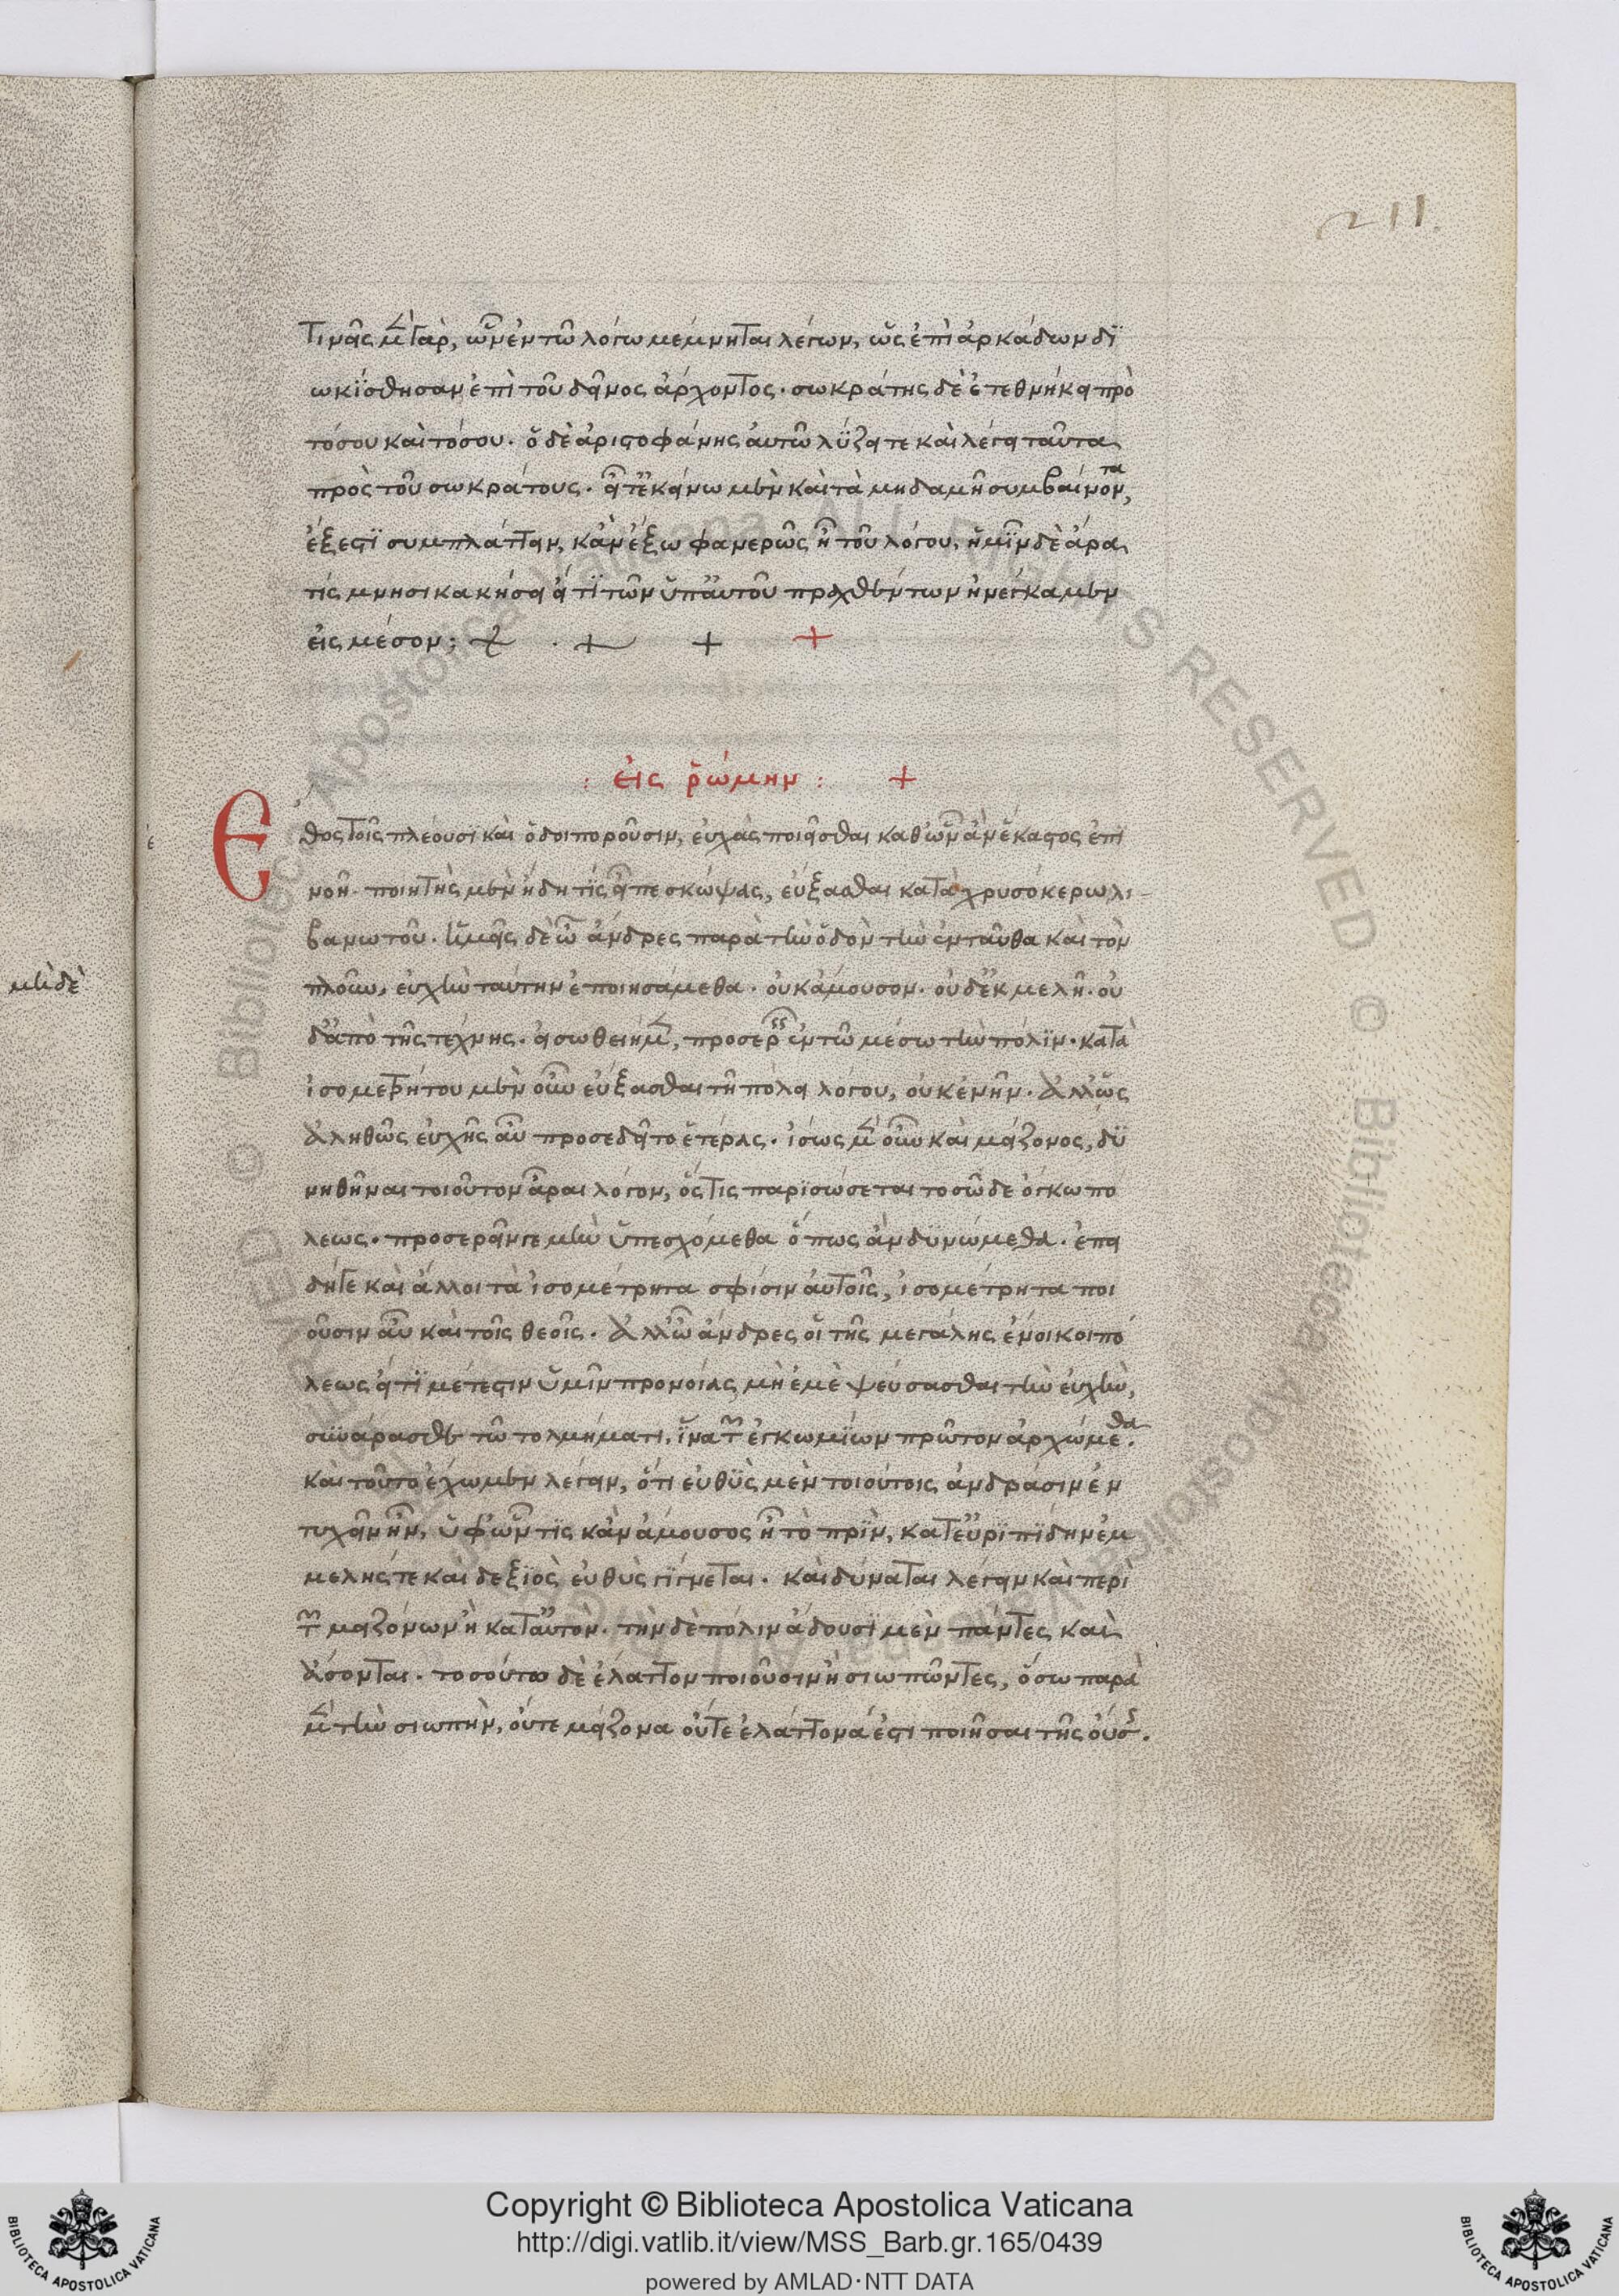 211.
Τινὰς μὲν γὰρ, ὧν ἐν τῶ λόγω μέμνηται λέγων, ὡς ἐπὶ ἀρκάδων δϊ
ωκίσθησαν ἐπὶ τοῦ δεῖνος ἄρχοντος. σωκράτης δὲ ἐτεθνήκει πρὸ
τόσου καὶ τόσου. ὁ δὲ ἀριστοφάνης αὐτῶ λύζει τε καὶ λέγει ταῦτα
πρὸς τοῦ σωκράτους. εἶτ' ἐκείνω μὲν καὶ τὰ μηδαμῆ συμβαίνοντα,
ἔξεστϊ συμπλάττειν, κἂν ἔξω φανερῶς ἦ τοῦ λόγου, ἡμῖν δὲ ἄρα
τίς μνησικακήσει εἴ τϊ τῶν ὑπ' αὐτοῦ πραχθέντων ἠνέγκαμεν
εἰς μέσον; + . + + +
: εἰς ῥώμην : +
Ἔθος τοῖς πλέουσϊ καὶ ὁδοιποροῦσιν, εὐχὰς ποιεῖσθαι καθ' ὧν ἂν ἕκαστος ἐπι
νοῆ. ποιητὴς μὲν ἤδη τϊς εἶπε σκώψας, εὔξασθαι κατὰ χρυσόκερω λι-
βανωτοῦ. ἡμεῖς δὲ ὦ ἄνδρες παρὰ τὴν ὁδὸν τὴν ἐνταῦθα καὶ τὸν
πλοῦν, εὐχὴν ταύτην ἐποιησάμεθα. οὐκ ἄμουσον. οὐδ' ἐκμελῆ. οὐ
δ' ἀπὸ τῆς τέχνης. εἰ σωθείημεν, προσερεῖν ἐν τῶ μέσω τὴν πόλϊν. κατὰ
ἰσομετρήτου μὲν οὖν εὔξασθαι τῆ πόλει λόγου, οὐκ ἐνῆν. ἀλλ' ὡς
ἀληθῶς εὐχῆς αὖ προσεδεῖτο ἑτέρας. ἴσως μὲν οὖν καὶ μείζονος, δϋ
νηθῆναι τοιοῦτον ἆραι λόγον, ὅστις παρϊσώσεται τοσῶδε ὄγκω πό
λεως. προσερεῖν γε μὴν ὑπεσχόμεθα ὅπως ἂν δϋνώμεθα. ἐπει
δήγε καὶ ἄλλοι τὰ ἰσομέτρητα σφίσιν αὐτοῖς, ἰσομέτρητα ποι
οῦσιν αὖ καὶ τοῖς θεοῖς. ἀλλ' ὦ ἄνδρες οἱ τῆς μεγάλης ἔνοικοι πό
λεως εἴ τϊ μέτεστιν ὑμῖν προνοίας μὴ ἐμὲ ψεύσασθαι τὴν εὐχὴν,
συνάρασθε τῶ τολμήματι, ἵνα τῶν ἐγκωμϊων πρῶτον ἀρχώμεθα.
καὶ τοῦτο ἔχωμεν λέγειν, ὅτι εὐθὺς μὲν τοιούτοις ἀνδράσιν ἐν
τυχεῖν ἦν, ὑφ' ὧν τϊς κἂν ἄμουσος ἦ τὸ πρϊν, κατ' εὐρϊπϊδην ἐμ
μελής τε καὶ δεξϊὸς εὐθὺς γίγνεται. καὶ δύναται λέγειν καὶ περὶ
τῶν μειζόνων ἢ κατ' αὐτόν. τὴν δὲ πόλιν ἄδουσϊ μὲν πάντες καὶ
ἄσονται. τοσούτω δὲ ἔλαττον ποιοῦσιν ἢ σιωπῶντες, ὅσω παρὰ
μὲν τὴν σιωπὴν, οὔτε μείζονα οὔτε ἐλάττονά ἐστι ποιῆσαι τῆς οὔσης.
μὴ δὲ
Copyright © Biblioteca Apostolica Vaticana
http://digi.vatlib.it/view/MSS_Barb.gr.165/0439
powered by AMLAD·NTT DATA